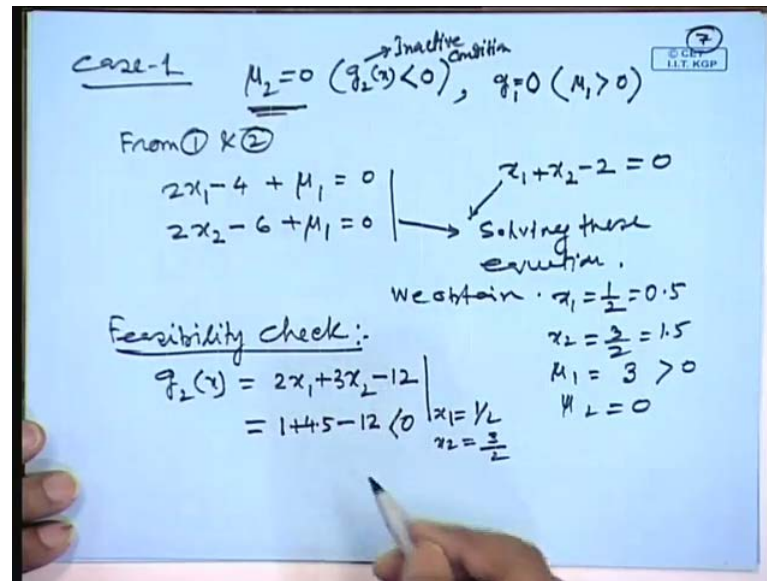 7
© CET
I.I.T. KGP
Case-1 μ₂=0 (g₂(x)<0), g₁=0 (μ₁>0)
→Inactive condition
From ① & ②
2x₁-4 + μ₁ = 0
2x₂-6 + μ₁ = 0
x₁+x₂-2 = 0
Solving these
equation.
We obtain. x₁ = 1/2 = 0.5
x₂ = 3/2 = 1.5
μ₁ = 3 > 0
μ₂ = 0
Feasibility check:-
g₂(x) = 2x₁+3x₂-12
= 1+4.5-12 <0
x₁= 1/2
x₂ = 3/2